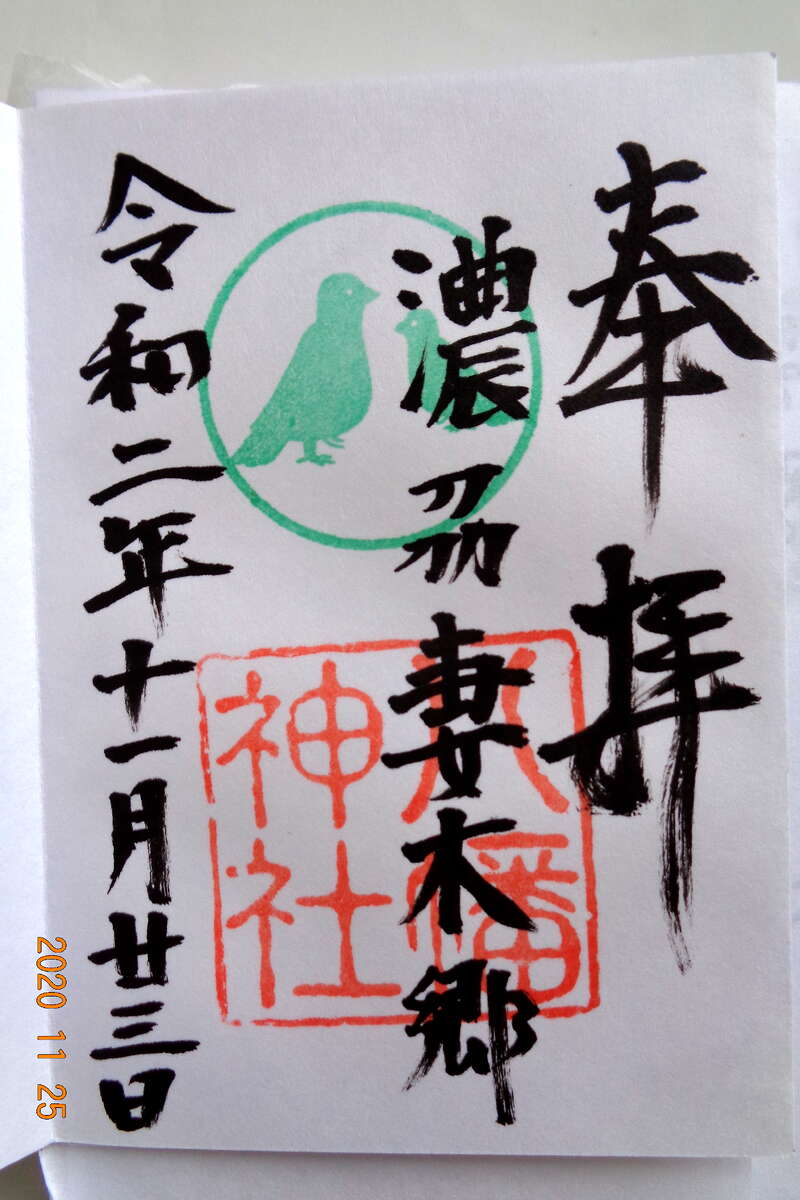 奉拝
濃刕妻木郷
八幡
神社
令和二年十一月廿三日
2020 11 25